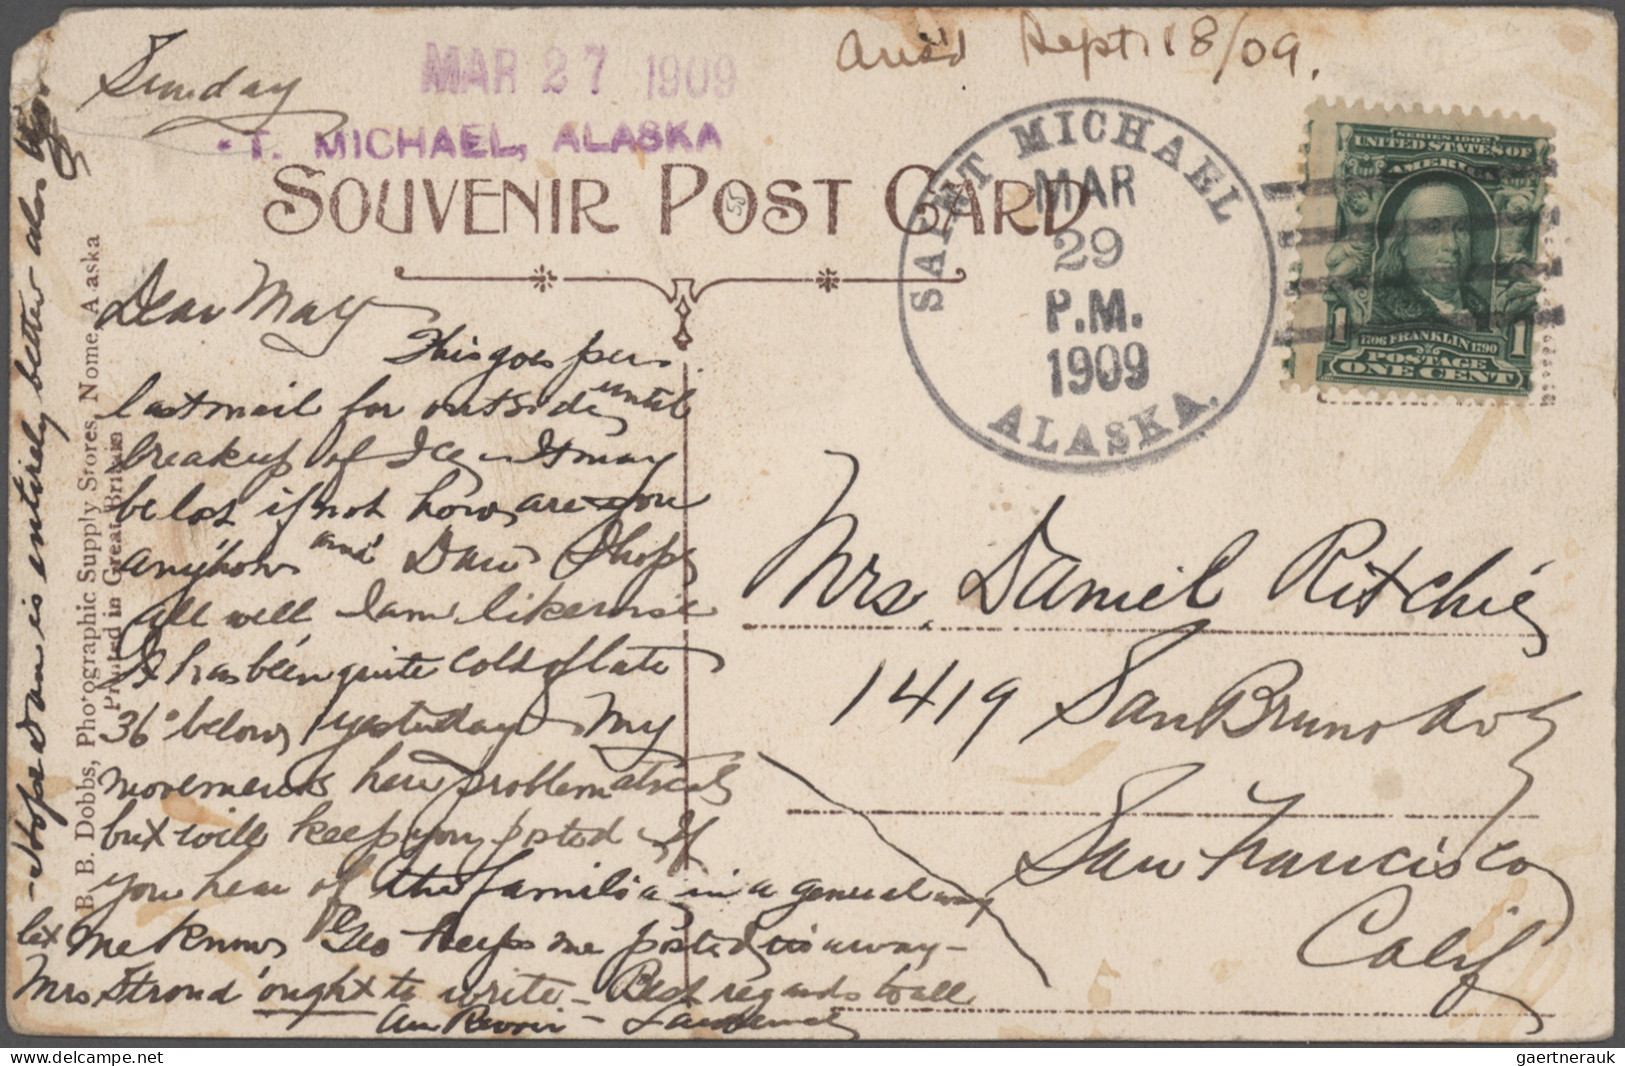 Sunday
MAR 27 1909
T. MICHAEL, ALASKA
Arriv'd Sept 18/09.
SOUVENIR POST CARD
SAINT MICHAEL
MAR
29
P.M.
1909
ALASKA.
SERIES 1902
UNITED STATES OF
AMERICA
1 1706 FRANKLIN 1790 1
POSTAGE
ONE CENT
Dear May
This goes per
last mail for outside until
breakup of Ice - It may
be lost if not how are you
anyhow and Dan I hope
all well I am likewise
It has been quite cold of late
36° below yesterday - My
movements here problematical
but will keep you posted - If
you hear of the familia in a general way
let me know Geo keeps me posted in a way -
Mrs Stroud ought to write - Best regards to all
Au Revoir -
- Hope Dan is entirely better also
B. B. Dobbs, Photographic Supply Stores, Nome, A aska
Printed in Great Britain
Mrs. Daniel Ritchie
1419 San Bruno Av
San Francisco
Calif
gaertnerauk @ delcampe.net